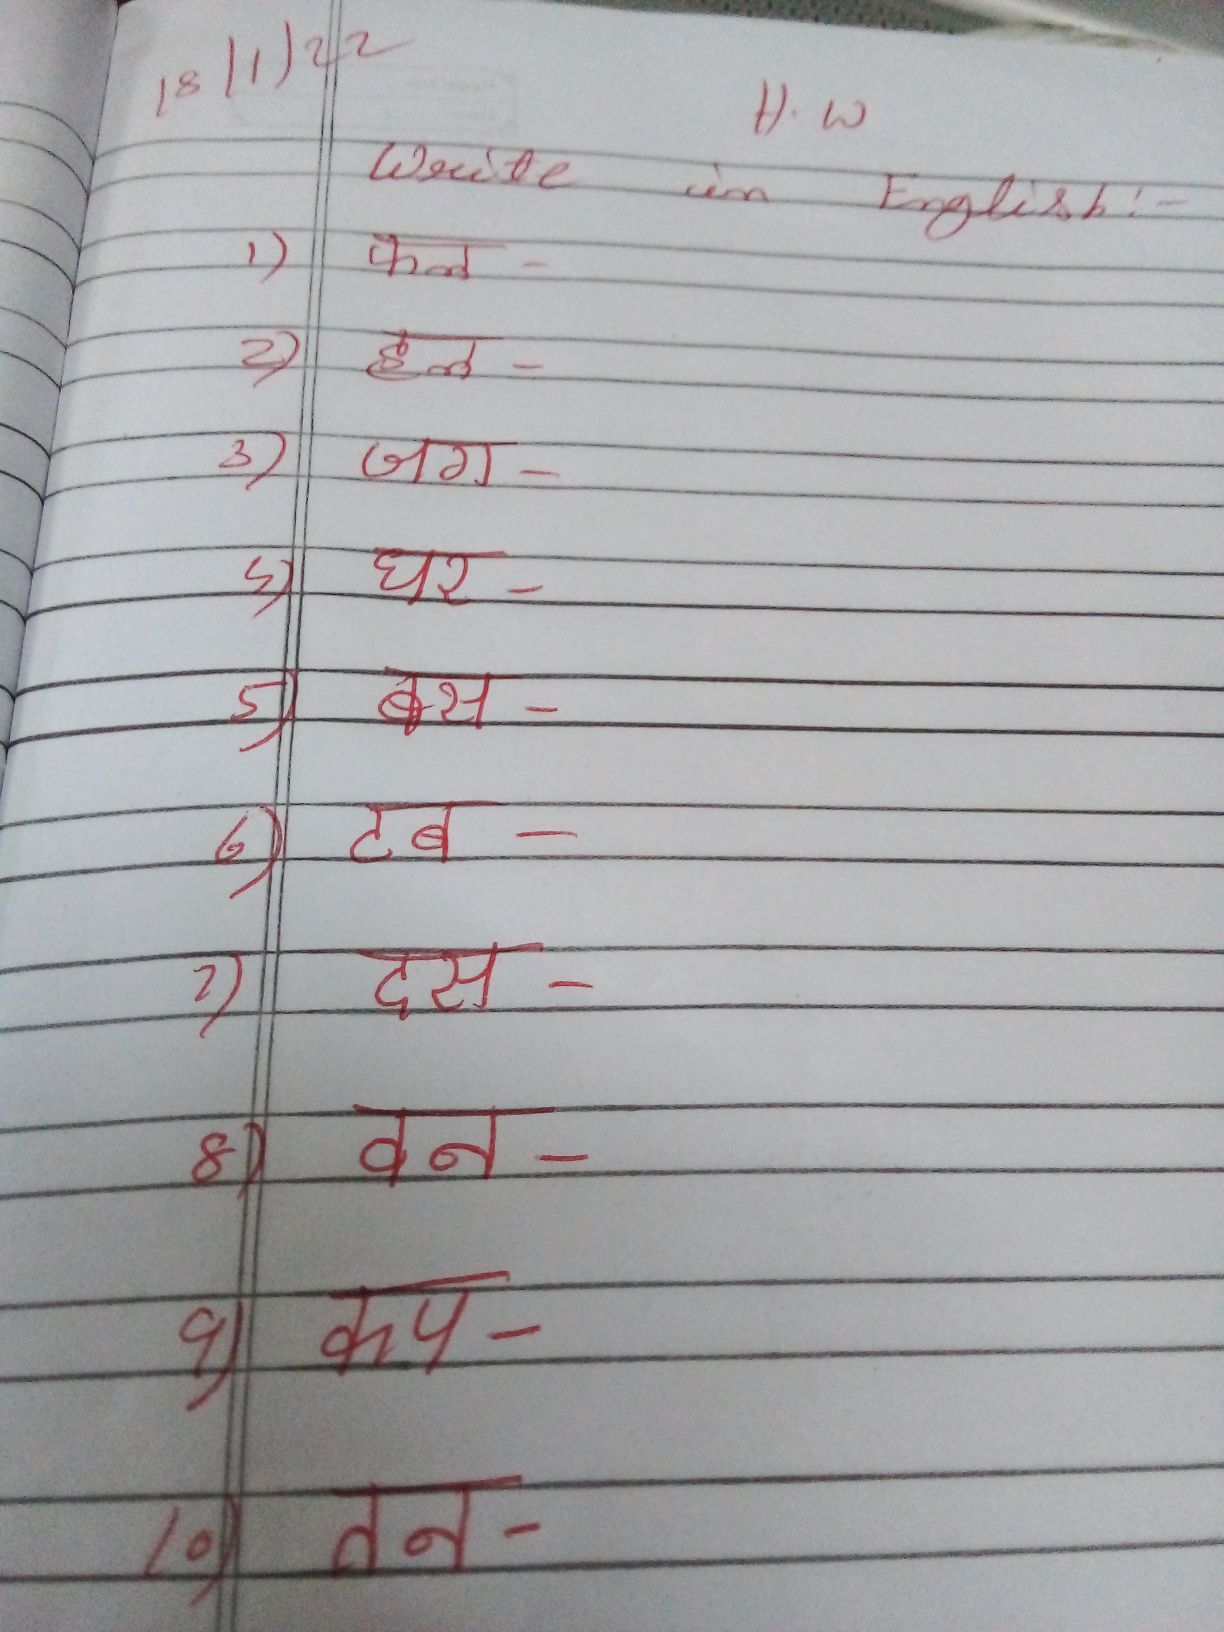 18/1/22
H.W
Write in English:-
1) फन -
2) हन -
3) जग -
4) घर -
5) बस -
6) टब -
7) दस -
8) वन -
9) कप -
10) तन -